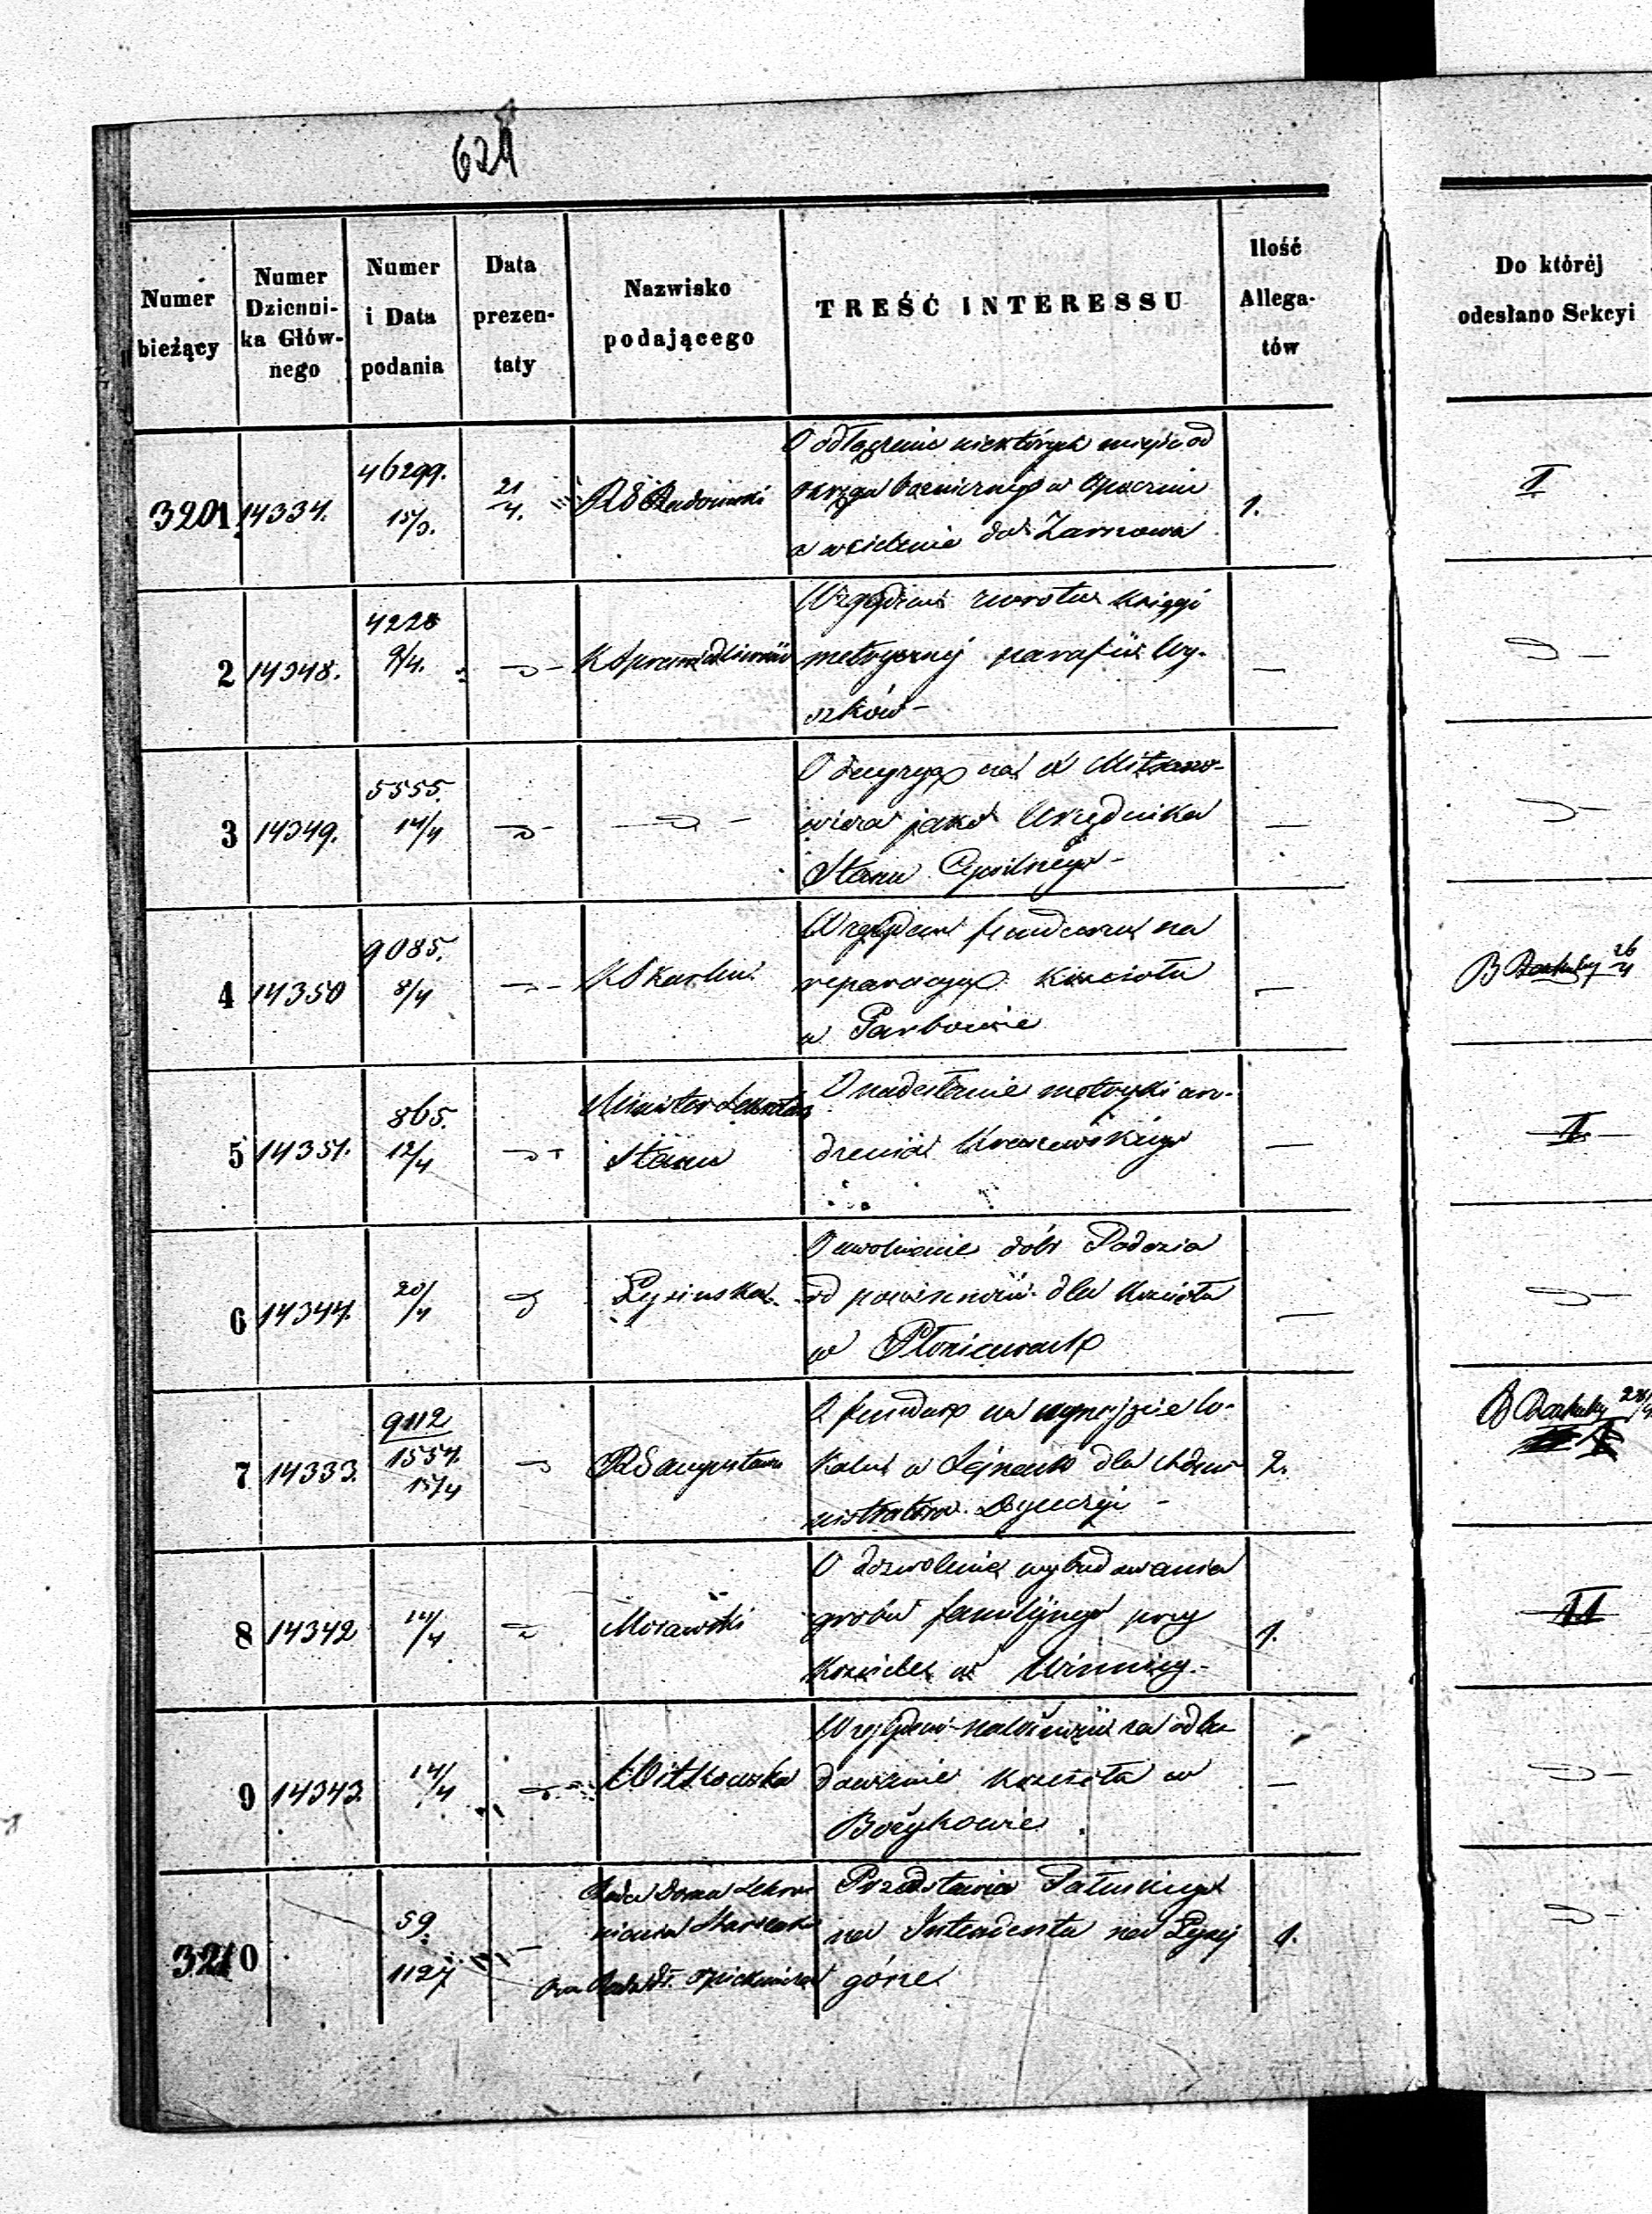 621
Numer bieżący
Numer Dzienni-ka Głów-nego
Numer i Data podania
Data prezen-taty
Nazwisko podającego
TREŚĆ INTERESSU
Ilość Allega-tów
Do któréj odesłano Sekcyi
3201 14334. 46299. 15/3. 21/4. RG Radomski
O odłączenie niektórych miejsc od
okręgu bożnicznego w Opocznie
a wcielenie do Żarnowa
1. I
2 14348. 4228 9/4.
Względem zwrotu księgi
metrycznej parafii Wy-
szków -
3 14349. 5555. 14/4
O decyzyę na X
jako Urzędnika
Stanu Cywilnego -
4 14350 9085. 8/4 K Skarbu
Względem funduszu na
reparacyę Kościoła
w Garbowie
B 26/4
5 14351. 865. 12/4
Minister Sekretarz
Stanu
O nadesłanie metryki uro-
dzenia Kraszewskiego
I
6 14344. 20/4 Łysinska
O uwolnienie dóbr
od powinności dla Kościoła
w
7 14333. 9112 1554. 15/4 RG Augustows
O fundusz na wynajęcie lo-
kalu w Sejnach dla Admi-
nistratora Dyecezyi -
2. B 28/4
8 14342 14/4 Morawski
O dozwolenie wybudowania
grobu familijnego przy
Kościele w Winnicy. -
1. II
9 14343. 14/4 Witkowska
Względem należności za odbu-
dowanie Kościoła w
Borzykowie
3210 59. 1127
Rada Domu
Przedstawia
na Intendenta na Łysej
górze
1.